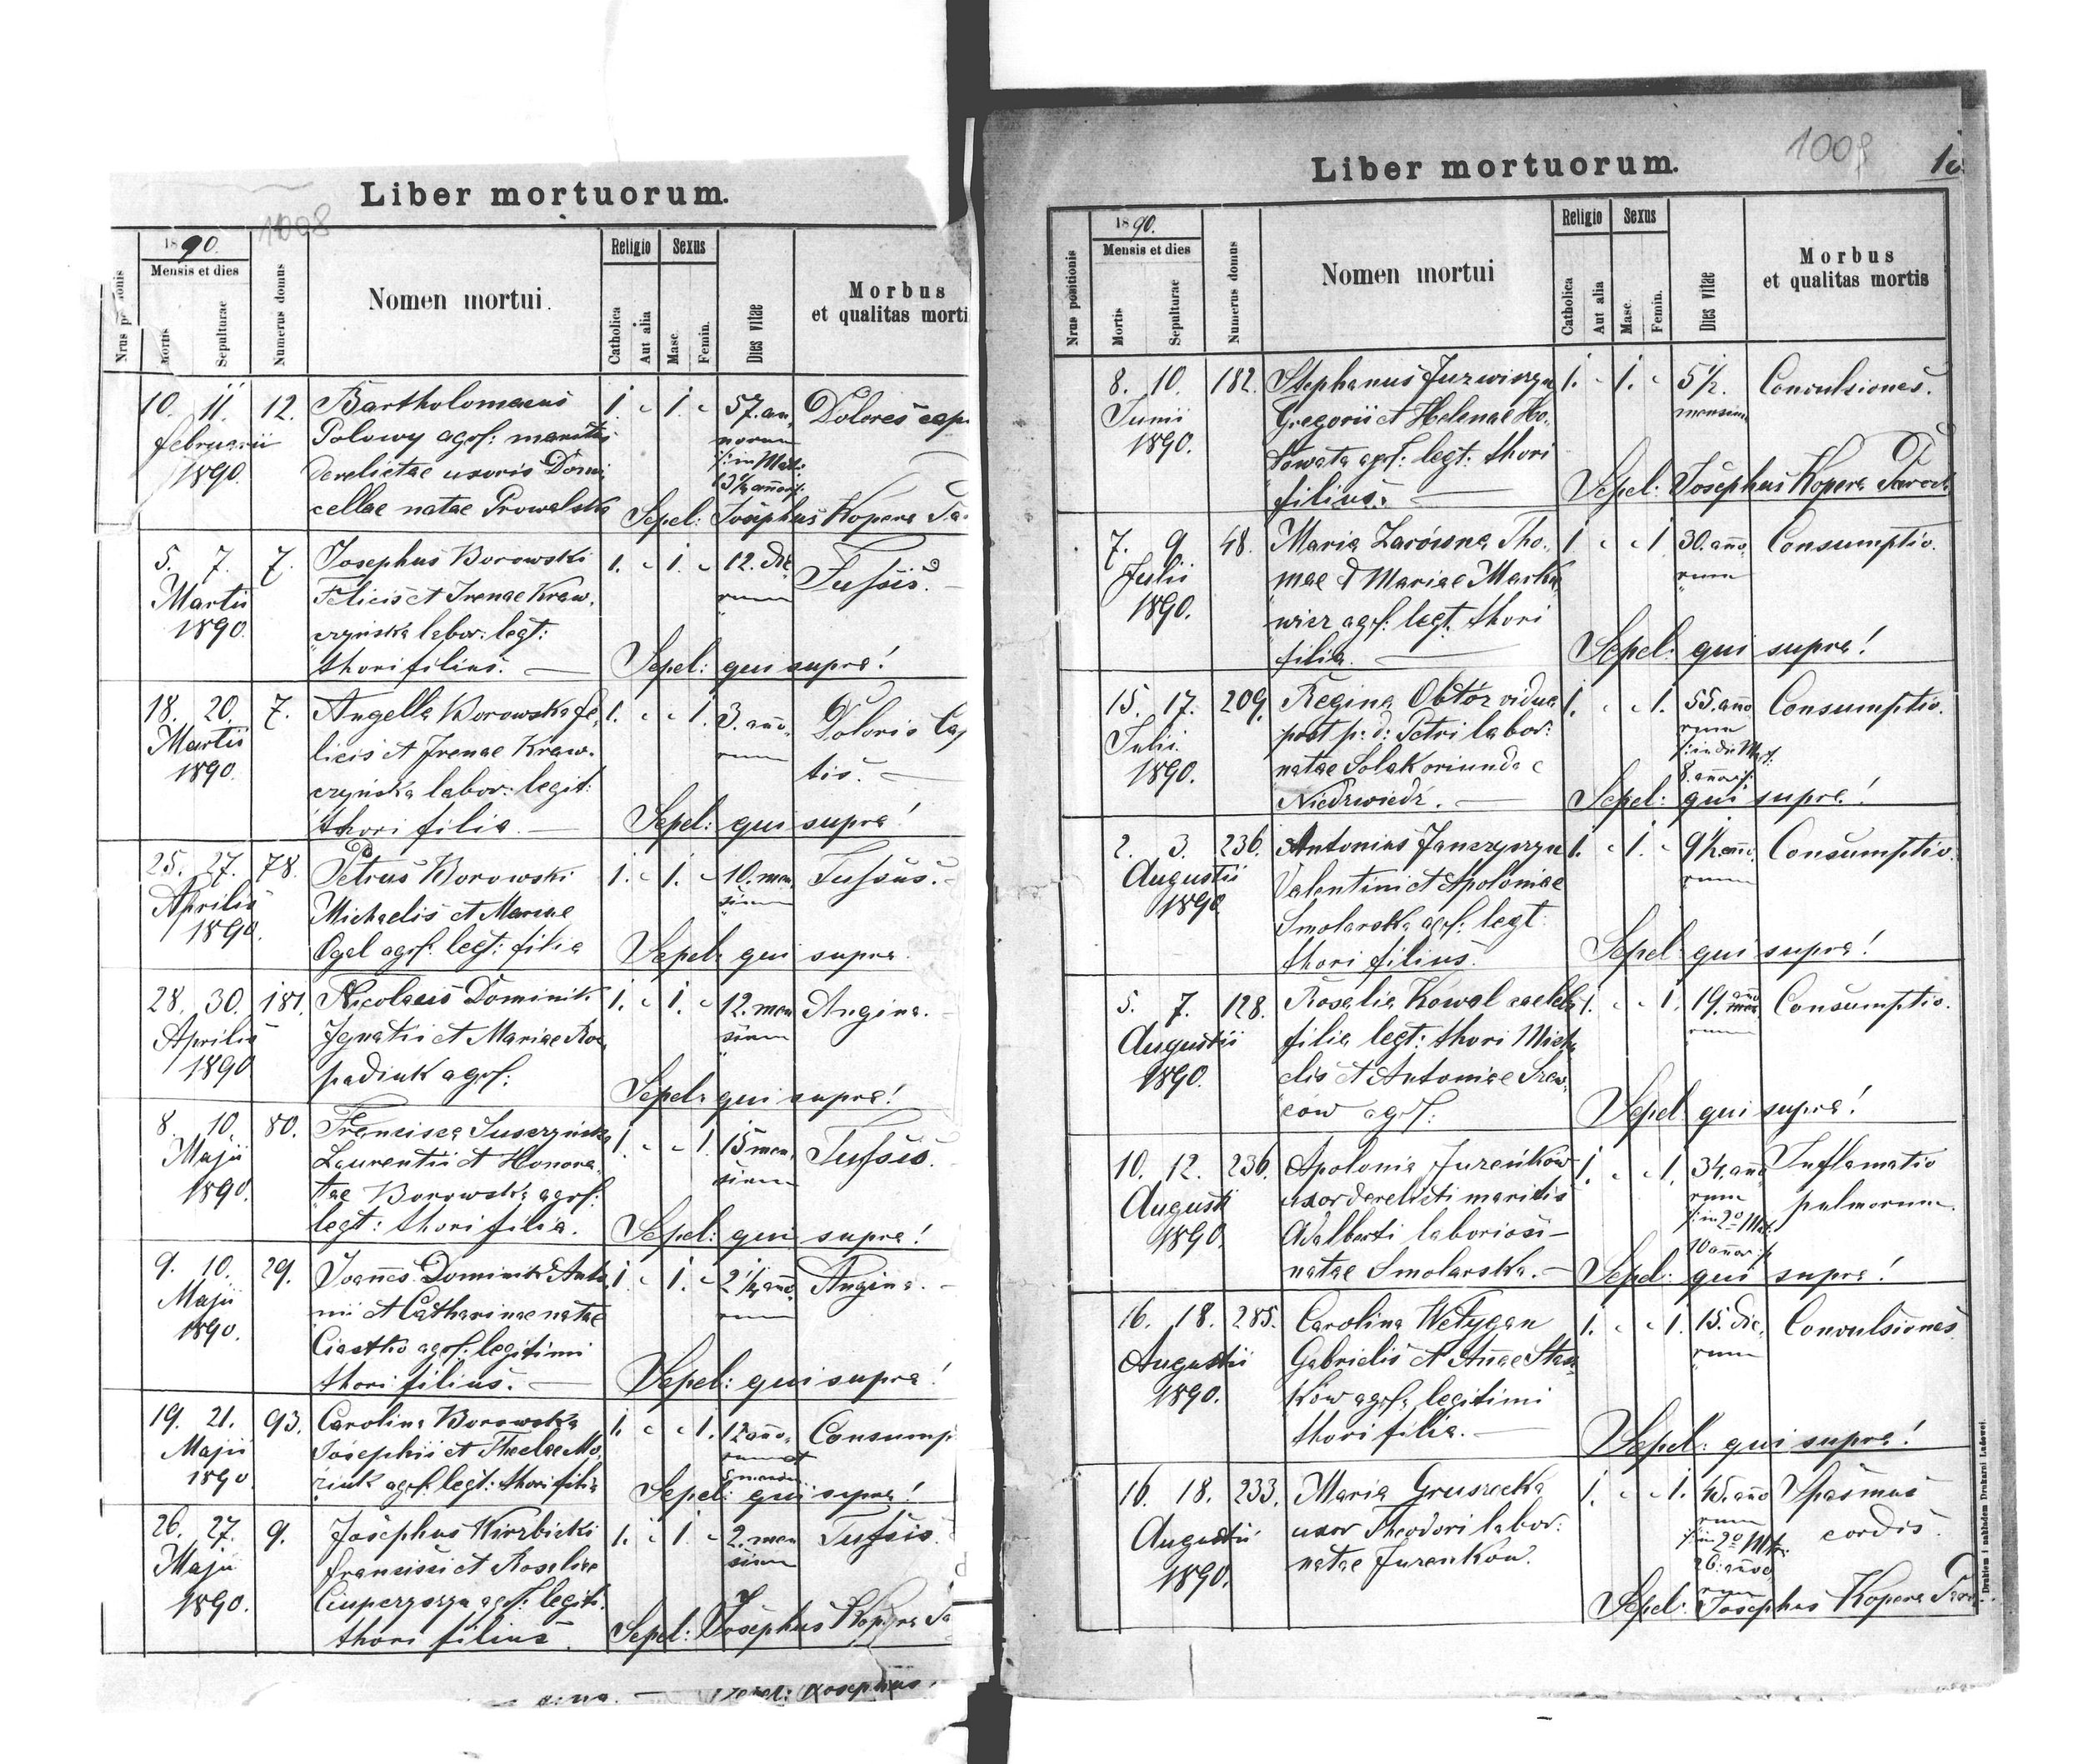 Liber mortuorum.
1008
1890.
Mensis et dies
Mortis
Sepulturae
Numerus domus
Nomen mortui.
Religio
Catholica
Aut alia
Sexus
Masc.
Femin.
Dies vitae
Morbus
et qualitas morti
10. 11. 12. Bartholomaeus 1. 1. 57. an
februarii Polowy agr: maritus norum
1890. derelictae uxoris Domi
cellae natae Prowalska
Dolores cap
Sepel: Josephus Kopera
5. 7. 7. Josephus Borowski 1. 1. 12. die Tussis.
Martii Felicis et Irenae Kraw. rum
1890. czyńska labor: legt:
thori filius. Sepel: qui supra!
18. 20. 7. Angella Borowska fe 1. 1. 3. año Doloris Cap
Martii licis et Irenae Kraw. rum tis.
1890. czyńska labor: legit:
thori filia. Sepel: qui supra!
25. 27. 78. Petrus Borowski 1. 1. 10. men Tussus.
Aprilis Michaelis et Mariae sium
1890. Ogel agr: legt: filia Sepel: qui supra
28. 30. 181. Nicolaus Dominik 1. 1. 12. men Angina.
Aprilis Ignatii et Mariae sium
1890 padiuk agr:
Sepel: qui supra!
8. 10. 80. Francisca Suszczyńska 1. 1. 15 men Tussis.
Maji Laurentii et Honora sium
1890. tae Borowska agr:
legt: thori filia. Sepel: qui supra!
9. 10. 29. Joañes Dominik Anto 1. 1. 2½ año Angina.
Maji nii et Catharinae natae rum
1890. Ciastko agr: legitimi
thori filius. Sepel: qui supra!
19. 21. 93. Carolina Borowska 1. 1. 12 año Consump
Maji Josephii et Theclae Mo rum et
1890 riuk agr: legt: thori filia
Sepel: qui supra!
26. 27. 9. Josephus Wirzbicki 1. 1. 2. men Tussis.
Maji francisci et Rosaliae sium
1890. Ciuperczyn agr: legiti.
thori filius. Sepel: Josephus Kopera
Sepel: Josephus
Liber mortuorum.
1009
10
Nrus positionis
1890.
Mensis et dies
Mortis
Sepulturae
Numerus domus
Nomen mortui
Religio
Catholica
Aut alia
Sexus
Masc.
Femin.
Dies vitae
Morbus
et qualitas mortis
8. 10. 182. Stephanus Juzwiszyn 1. 1. 5½ Convulsiones.
Junii Gregorii et Helenae Ho mensium
1890. towata agr: legt: thori
filius. Sepel: Josephus Kopera Paroch
7. 9. 48. Maria Zarówna Tho 1. 1 30. año Consumptio.
Julii mae et Mariae Marku rum
1890. wicz agr: legt. thori
filia. Sepel: qui supra!
15. 17. 209. Regina Obtór vidua 1. 1. 55. año Consumptio.
Julii post p: d: Petri labor: rum
1890. natae Solak oriunda e
Niedzwiedź. Sepel: qui supra!
2. 3. 236. Antonius Janczyszyn 1. 1. 9½ añi Consumptio.
Augustii Valentini et Apoloniae rum
1890 Smolarska agr: legt.
thori filius. Sepel: qui supra!
5. 7. 128. Rosalia Kowal caelebs 1. 1. 19. año Consumptio.
Augustii filia legt: thori Micha rum
1890. elis et Antoniae Szew
ców agr: Sepel: qui supra!
10. 12. 236. Apolonia Jureńków 1. 1. 34. año Inflamatio
Augusti uxor derelicti maritis rum pulmorum.
1890. Adalberti laboriosi
natae Smolarska. 10 añor
Sepel: qui supra!
16. 18. 285. Carolina Wetygan 1. 1. 15. die Convulsiones.
Augustii Gabrielis et Añae Stas rum
1890. ków agr: legitimi
thori filia. Sepel: qui supra!
16. 18. 233. Maria Gruszecka 1. 1. 45. año Spasmus
Augustii uxor Theodori labor: rum cordis.
1890. natae Jurenkow.
Sepel: Josephus Kopera Paro
Drukiem i nakładem Drukarni Ludowej.